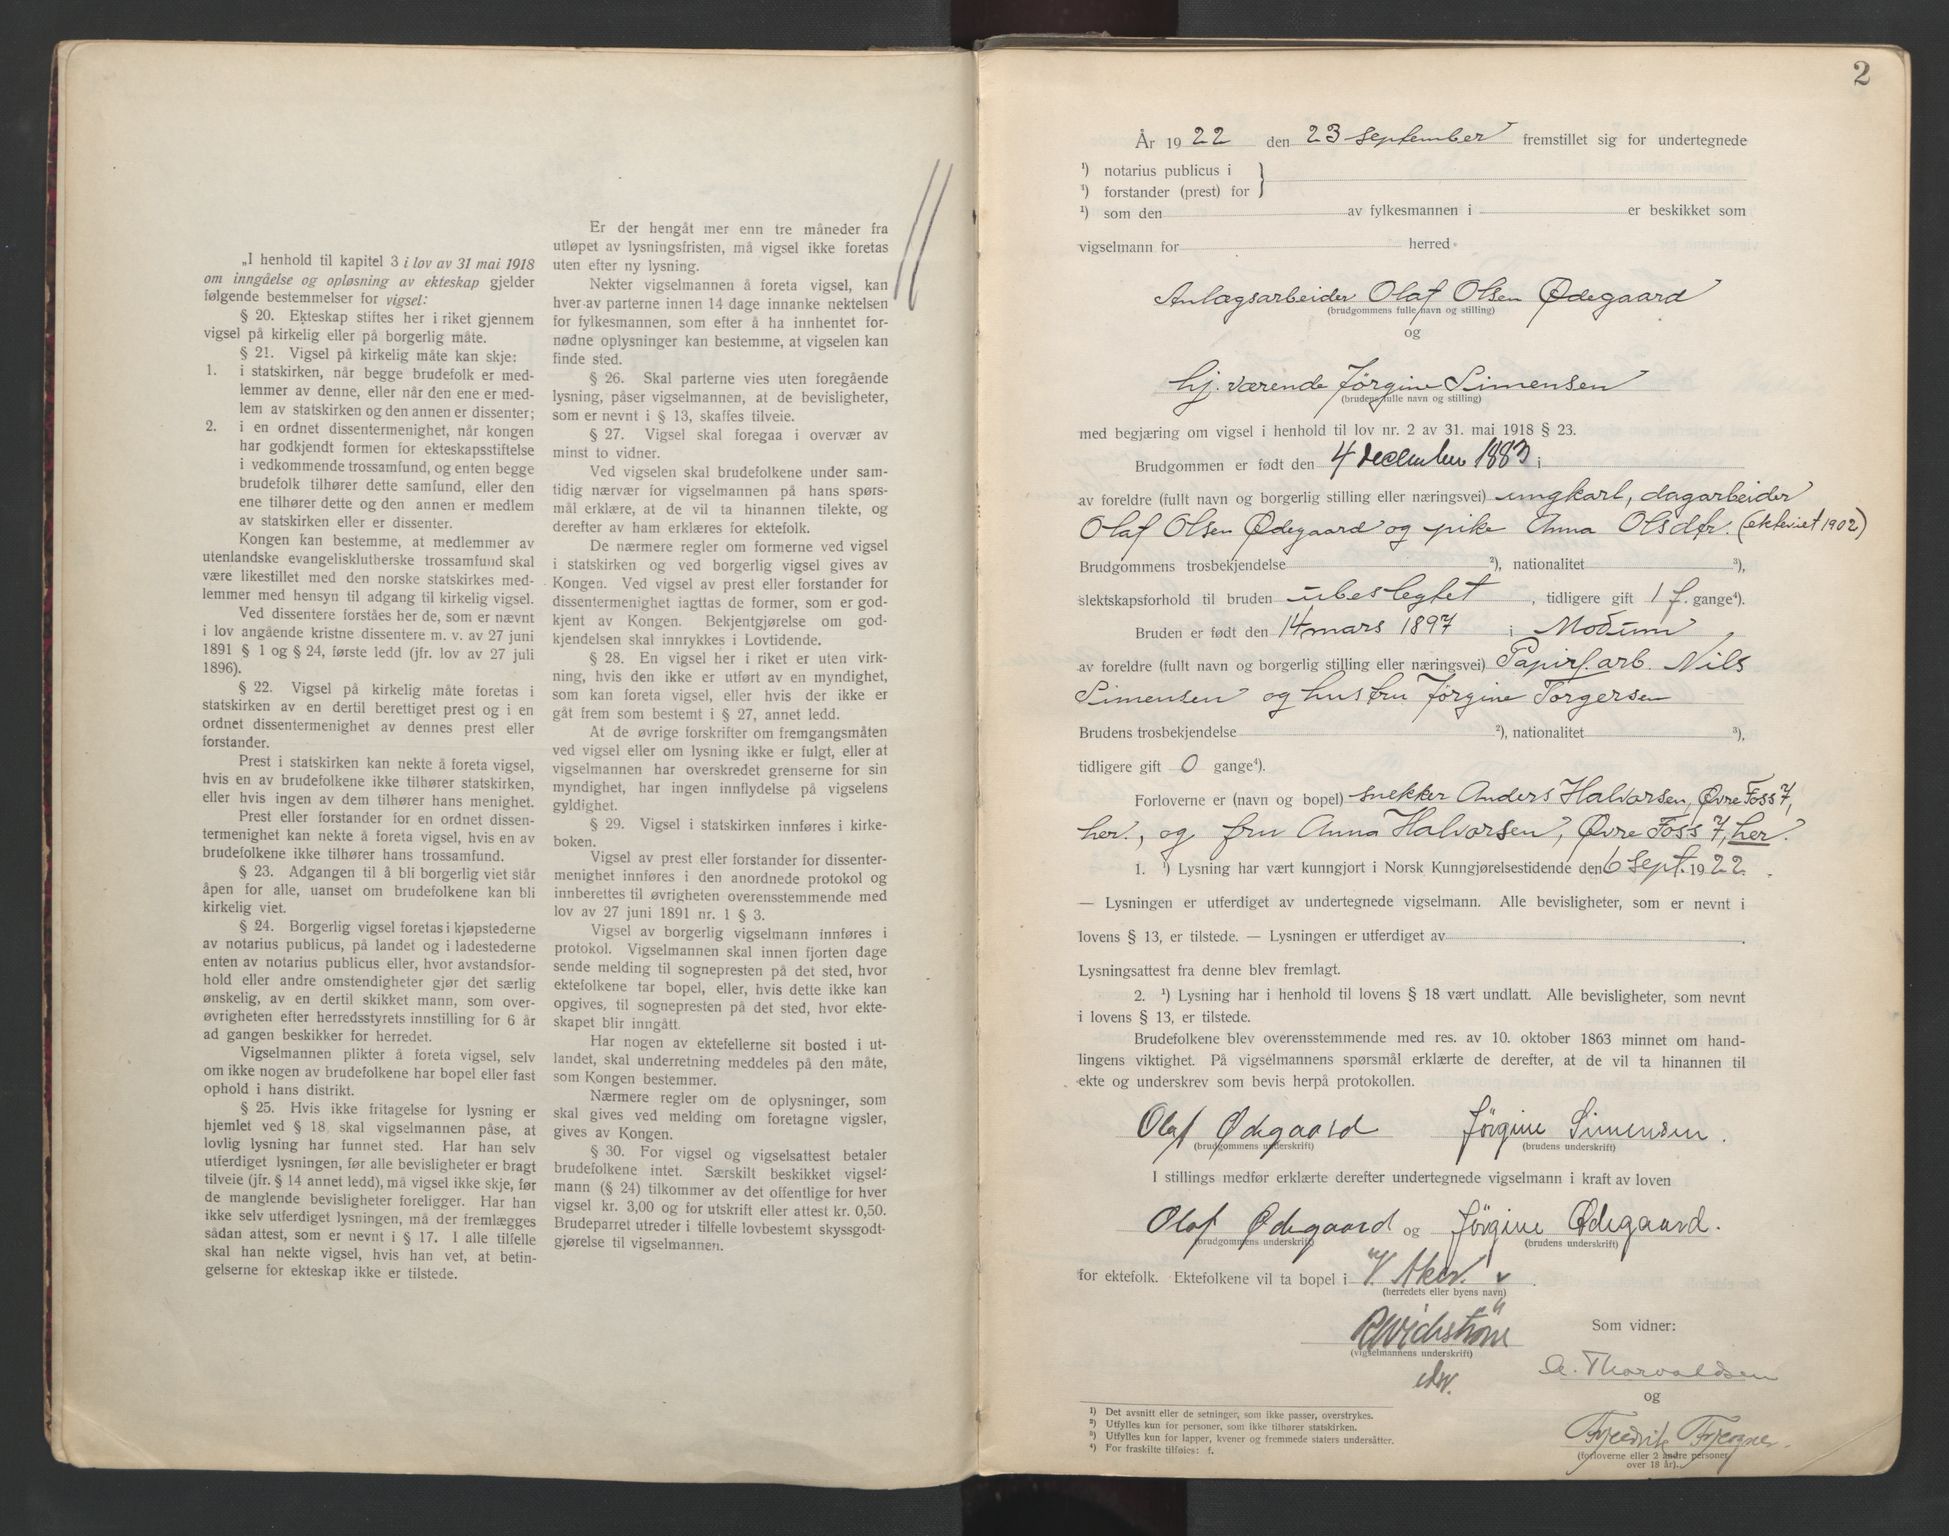 „I henhold til kapitel 3 i lov av 31 mai 1918
om inngåelse og opløsning av ekteskap gjelder
følgende bestemmelser for vigsel:
§ 20. Ekteskap stiftes her i riket gjennem
vigsel på kirkelig eller på borgerlig måte.
§ 21. Vigsel på kirkelig måte kan skje:
1. i statskirken, når begge brudefolk er med-
lemmer av denne, eller når den ene er med-
lem av statskirken og den annen er dissenter;
2. i en ordnet dissentermenighet, når kongen
har godkjendt formen for ekteskapsstiftelse
i vedkommende trossamfund, og enten begge
brudefolk tilhører dette samfund, eller den
ene tilhører dette og den annen er medlem
av statskirken eller er dissenter.
Kongen kan bestemme, at medlemmer av
utenlandske evangelisklutherske trossamfund skal
være likestillet med den norske statskirkes med-
lemmer med hensyn til adgang til kirkelig vigsel.
Ved dissentere forståes her de, som er nævnt
i lov angående kristne dissentere m. v. av 27 juni
1891 § 1 og § 24, første ledd (jfr. lov av 27 juli
1896).
§ 22. Vigsel på kirkelig måte foretas i
statskirken av en dertil berettiget prest og i en
ordnet dissentermenighet av dennes prest eller
forstander.
Prest i statskirken kan nekte å foreta vigsel,
hvis en av brudefolkene ikke tilhører statskirken,
eller hvis ingen av dem tilhører hans menighet.
Prest eller forstander for en ordnet dissen-
termenighet kan nekte å foreta vigsel, hvis en av
brudefolkene ikke tilhører hans trossamfund.
§ 23. Adgangen til å bli borgerlig viet står
åpen for alle, uanset om brudefolkene kan bli
kirkelig viet.
§ 24. Borgerlig vigsel foretas i kjøpstederne
av notarius publicus, på landet og i ladestederne
enten av notarius publicus eller, hvor avstandsfor-
hold eller andre omstendigheter gjør det særlig
ønskelig, av en dertil skikket mann, som over-
øvrigheten efter herredsstyrets innstilling for 6 år
ad gangen beskikker for herredet.
Vigselmannen plikter å foreta vigsel, selv
om ikke nogen av brudefolkene har bopel eller fast
ophold i hans distrikt.
§ 25. Hvis ikke fritagelse for lysning er
hjemlet ved § 18, skal vigselmannen påse, at
lovlig lysning har funnet sted. Har han selv
utferdiget lysningen, før alle bevisligheter er bragt
tilveie (jfr. § 14 annet ledd), må vigsel ikke skje, før
de manglende bevisligheter foreligger. Har han
ikke selv utferdiget lysningen, må der fremlægges
sådan attest, som er nevnt i § 17. I alle tilfelle
skal han nekte vigsel, hvis han vet, at betin-
gelserne for ekteskap ikke er tilstede.
Er der hengåt mer enn tre måneder fra
utløpet av lysningsfristen, må vigsel ikke foretas
uten efter ny lysning.
Nekter vigselmannen å foreta vigsel, kan
hver av parterne innen 14 dage innanke nektelsen
for fylkesmannen, som efter å ha innhentet for-
nødne oplysninger kan bestemme, at vigselen kan
finde sted.
§ 26. Skal parterne vies uten foregående
lysning, påser vigselmannen, at de bevisligheter,
som er nevnt i § 13, skaffes tilveie.
§ 27. Vigsel skal foregaa i overvær av
minst to vidner.
Ved vigselen skal brudefolkene under sam-
tidig nærvær for vigselmannen på hans spørs-
mål erklære, at de vil ta hinannen tilekte, og
derefter av ham erklæres for ektefolk.
De nærmere regler om formerne ved vigsel
i statskirken og ved borgerlig vigsel gives av
Kongen. Ved vigsel av prest eller forstander for
dissentermenighet iagttas de former, som er god-
kjent av Kongen. Bekjentgjørelse om god-
kjendelsen skal innrykkes i Lovtidende.
§ 28. En vigsel her i riket er uten virk-
ning, hvis den ikke er utført av en myndighet,
som kan foreta vigsel, eller hvis der ikke er
gåt frem som bestemt i § 27, annet ledd.
At de øvrige forskrifter om fremgangsmåten
ved vigsel eller om lysning ikke er fulgt, eller at
vigselmannen har overskredet grenserne for sin
myndighet, har ingen innflydelse på vigselens
gyldighet.
§ 29. Vigsel i statskirken innføres i kirke-
boken.
Vigsel av prest eller forstander for dissenter-
menighet innføres i den anordnede protokol og
innberettes til øvrigheten overensstemmende med
lov av 27 juni 1891 nr. 1 § 3.
Vigsel av borgerlig vigselmann innføres i
protokol. Vigselmannen skal innen fjorten dage
sende melding til sognepresten på det sted, hvor
ektefolkene tar bopel, eller, hvis dette ikke kan
opgives, til sognepresten på det sted, hvor ekte-
skapet blir inngått.
Har nogen av ektefellerne sit bosted i ut-
landet, skal underretning meddeles på den måte,
som Kongen bestemmer.
Nærmere regler om de oplysninger, som
skal gives ved melding om foretagne vigsler,
gives av Kongen.
§ 30. For vigsel og vigselsattest betaler
brudefolkene intet. Særskilt beskikket vigsel-
mann (§ 24) tilkommer av det offentlige for hver
vigsel kr. 3,00 og for utskrift eller attest kr. 0,50.
Brudeparret utreder i tilfelle lovbestemt skyssgodt-
gjørelse til vigselmannen.
2
År 1922 den 23 september fremstillet sig for undertegnede
¹) notarius publicus i
¹) forstander (prest) for
¹) som den av fylkesmannen i er beskikket som
vigselmann for herred
Anlægsarbeider Olaf Olsen Ødegaard
(brudgommens fulle navn og stilling)
og
hj. værende Jørgine Simensen
(brudens fulle navn og stilling)
med begjæring om vigsel i henhold til lov nr. 2 av 31. mai 1918 § 23.
Brudgommen er født den 4 december 1883 i
av foreldre (fullt navn og borgerlig stilling eller næringsvei) ungkarl, dagarbeider
Olaf Olsen Ødegaard og pike Anna Olsdtr. (ekteviet 1902)
Brudgommens trosbekjendelse ²), nationalitet ³),
slektskapsforhold til bruden ubeslegtet, tidligere gift 1 f. gange⁴).
Bruden er født den 14 mars 1897 i Modum
av foreldre (fullt navn og borgerlig stilling eller næringsvei) Papirf. arb. Nils
Simensen og hustru Jørgine Torgersen
Brudens trosbekjendelse ²), nationalitet ³),
tidligere gift 0 gange⁴).
Forloverne er (navn og bopel) snekker Anders Halvorsen, Øvre Foss 7,
her, og fru Anna Halvorsen, Øvre Foss 7, her.
1. ¹) Lysning har vært kunngjort i Norsk Kunngjørelsestidende den 6 sept. 1922.
— Lysningen er utferdiget av undertegnede vigselmann. Alle bevisligheter, som er nevnt i
lovens § 13, er tilstede. — Lysningen er utferdiget av
Lysningsattest fra denne blev fremlagt.
2. ¹) Lysning har i henhold til lovens § 18 vært undlatt. Alle bevisligheter, som nevnt
i lovens § 13, er tilstede.
Brudefolkene blev overensstemmende med res. av 10. oktober 1863 minnet om hand-
lingens viktighet. På vigselmannens spørsmål erklærte de derefter, at de vil ta hinannen til
ekte og underskrev som bevis herpå protokollen.
Olaf Ødegaard Jørgine Simensen.
(brudgommens underskrift) (brudens underskrift)
I stillings medfør erklærte derefter undertegnede vigselmann i kraft av loven
Olaf Ødegaard og Jørgine Ødegaard.
(brudgommens underskrift) (brudens underskrift)
for ektefolk. Ektefolkene vil ta bopel i V. Aker.
(herredets eller byens navn)
Som vidner:
(vigselmannens underskrift)
A. Thorvaldsen
og
(forloverne eller 2 andre personer
over 18 år).
¹) Det avsnitt eller de setninger, som ikke passer, overstrykes.
²) Utfylles kun for personer, som ikke tilhører statskirken.
³) Utfylles kun for lapper, kvener og fremmede staters undersåtter.
⁴) For fraskilte tilføies: f.